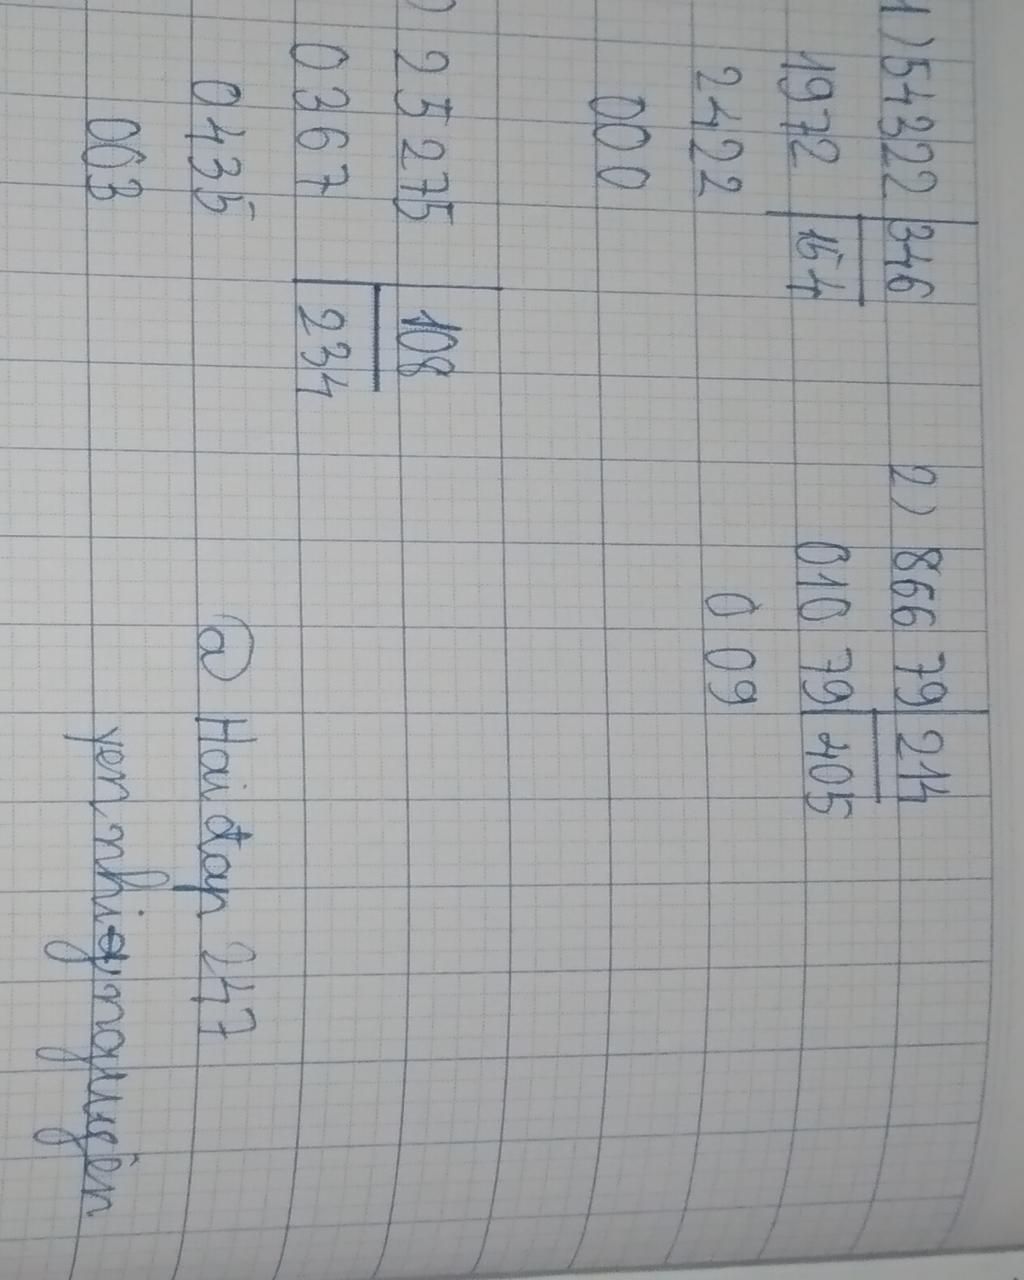 1) 54322 346
1972 154
2422
000
2) 86679 214
01079 405
009
) 25275 108
0367 234
0435
003
@ Hoidap 247
yen nhi nguyen